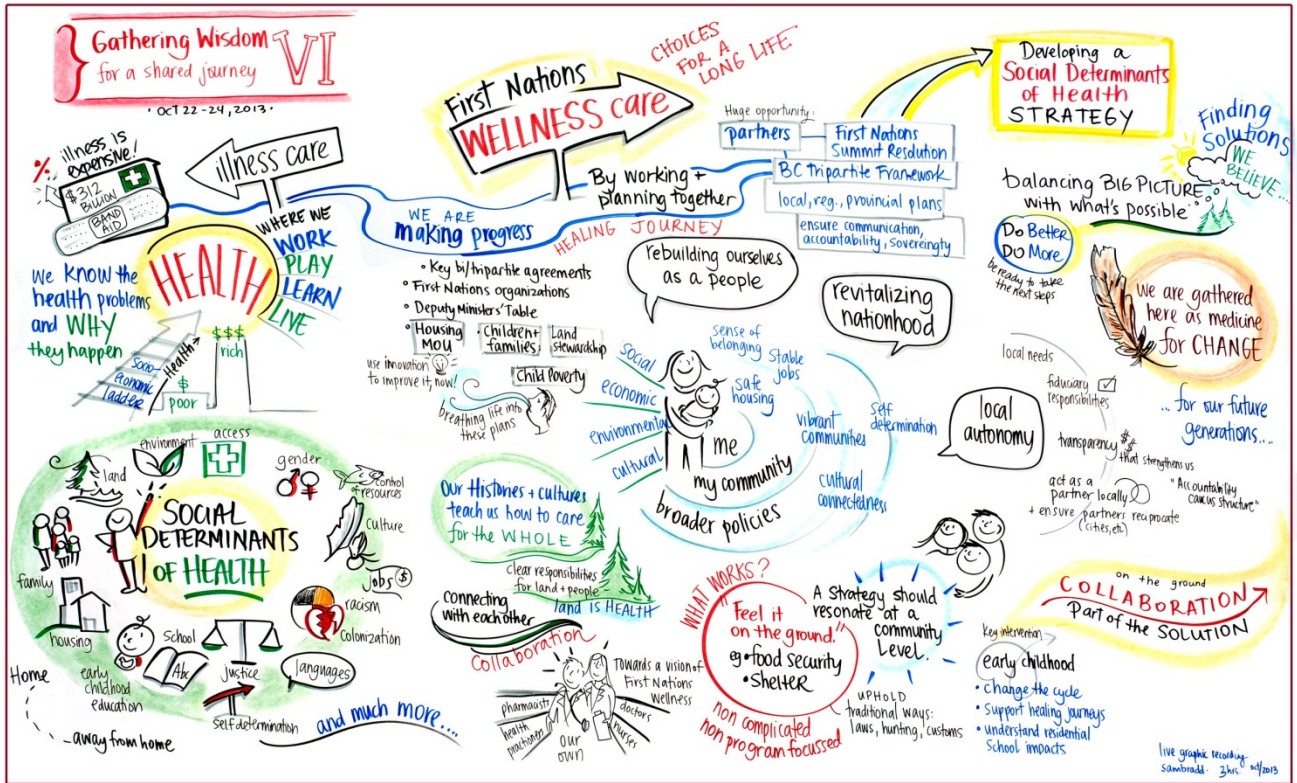 Gathering Wisdom
for a shared journey
VI
• OCT 22-24, 2013 •
illness is
expensive!
%
$312
BILLION
BAND
AID
illness care
First Nations
WELLNESS care
CHOICES
FOR A
LONG LIFE
Huge opportunity:
partners
First Nations
Summit Resolution
BC Tripartite Framework
local, reg., provincial plans
ensure communication,
accountability, sovereingty
Developing a
Social Determinants
of Health
STRATEGY
Finding
Solutions
WE
BELIEVE...
balancing BIG PICTURE
with what's possible
Do Better
Do More
be ready to take
the next steps
we are gathered
here as medicine
for CHANGE
... for our future
generations....
we know the
health problems
and WHY
they happen
HEALTH
WHERE WE
WORK
PLAY
LEARN
LIVE
Socio-
economic
ladder
Health
$
poor
$$$
rich
WE ARE
making progress
By working +
planning together
HEALING JOURNEY
• Key bi/tripartite agreements
• First Nations organizations
• Deputy Ministers' Table
• Housing
MOU
Children +
families
Land
stewardship
Child Poverty
use innovation
to improve it, now!
breathing life into
these plans
rebuilding ourselves
as a people
revitalizing
nationhood
social
economic
environmental
cultural
me
my community
broader policies
sense of
belonging
stable
jobs
safe
housing
vibrant
communities
self
determination
cultural
connectedness
local
autonomy
local needs
fiduciary
responsibilities
transparency $$
that strengthens us
"Accountability
caucus structure"
act as a
partner locally
+ ensure partners reciprocate
(cities, etc)
SOCIAL
DETERMINANTS
OF HEALTH
land
environment
access
gender
control
of resources
culture
Jobs $
racism
colonization
languages
justice
self determination
School
Abc
early
childhood
education
housing
family
Home
...away from home
and much more....
Our Histories + cultures
teach us how to care
for the WHOLE
clear responsibilities
for land + people
land is HEALTH
connecting
with each other
Collaboration
pharmacists
health
practitioners
our
own
nurses
doctors
Towards a vision of
First Nations
Wellness
WHAT WORKS?
"Feel it
on the ground."
eg • food security
• Shelter
non complicated
non program focussed
A strategy should
resonate at a
community
Level.
UPHOLD
traditional ways:
laws, hunting, customs
Key intervention
early childhood
• Change the cycle
• Support healing journeys
• understand residential
School impacts
on the ground
COLLABORATION
Part of the SOLUTION
live graphic recording
sambradd. 3hrs. oct/2013